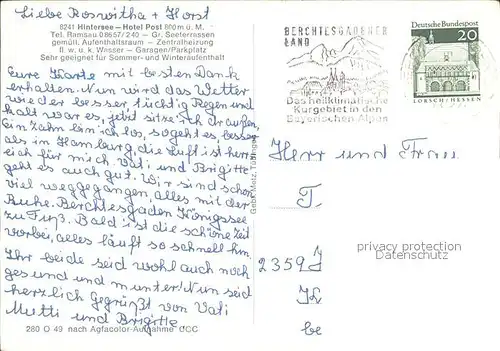 Liebe Roswitha + Horst
8241 Hintersee – Hotel Post 800 m ü. M.
Tel. Ramsau 08657/240 – Gr. Seeterrassen
gemütl. Aufenthaltsraum – Zentralheizung
fl. w. u. k. Wasser – Garagen/Parkplatz
Sehr geeignet für Sommer- und Winteraufenthalt
Eure Karte mit besten Dank
erhalten. Nun wird das Wetter
wieder besser, tüchtig Regen und
kalt war es, jetzt sitze ich draußen,
Ein Zahn bin ich los, so geht es, besser
als in Hamburg, die Luft ist herr
lich für mich. Vati und Brigitte
geht es auch gut. Wir sind schon
viel weggegangen, alles mit der
Ruhe. Berchtesgaden Königssee
zu Fuß. Bald ist die schöne Zeit
vorbei, alles läuft so schnell hin,
Ihr beide seid wohl auch noch
ges und und munter! Nun seid
herzlich Gegrüßt von Vati
Mutti und Brigitte
280 O 49 nach Agfacolor-Aufnahme CCC
Gebr. Metz, Tübingen
BERCHTESGADENER
LAND
Das heilklimatische
Kurgebiet in den
Bayerischen Alpen
Deutsche Bundespost
20
LORSCH/HESSEN
Herr und Frau
T.
privacy protection
Datenschutz
2359